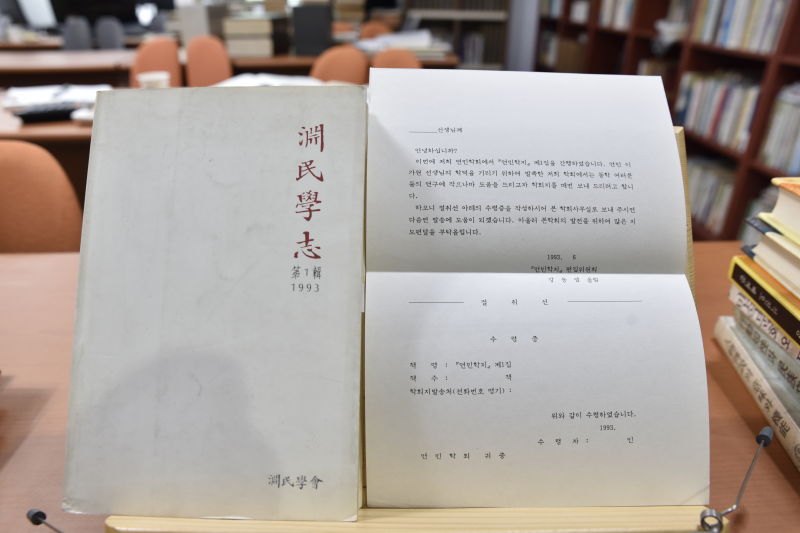 淵民學志
第1輯
1993
淵民學會
______선생님께
안녕하십니까?
이번에 저희 연민학회에서 『연민학지』 제1집을 간행하였습니다. 연민 이
가원 선생님의 학덕을 기리기 위하여 발족한 저희 학회에서는 동학 여러분
들의 연구에 작으나마 도움을 드리고자 학회지를 매번 보내 드리려고 합니
다.
하오니 절취선 아래의 수령증을 작성하시어 본 학회사무실로 보내 주시면
다음번 발송에 도움이 되겠습니다. 아울러 본학회의 발전을 위하여 많은 지
도편달을 부탁올립니다.
1993. 6
『연민학지』 편집위원회
절 취 선
수 령 증
책 명 : 『연민학지』 제1집
책 수 : 책
학회지발송처(전화번호 명기) :
위와 같이 수령하였습니다.
1993.
수 령 자 : 인
연 민 학 회 귀 중